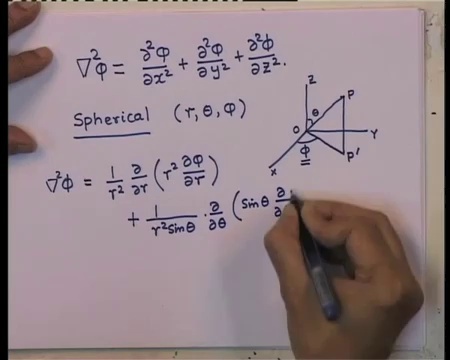 ∇²φ = ∂²φ/∂x² + ∂²φ/∂y² + ∂²φ/∂z².
Spherical (r, θ, φ)
Z
P
θ
O
Y
φ
P'
X
∇²φ = 1/r² ∂/∂r (r² ∂φ/∂r)
+ 1/r²sinθ · ∂/∂θ (sinθ ∂/∂